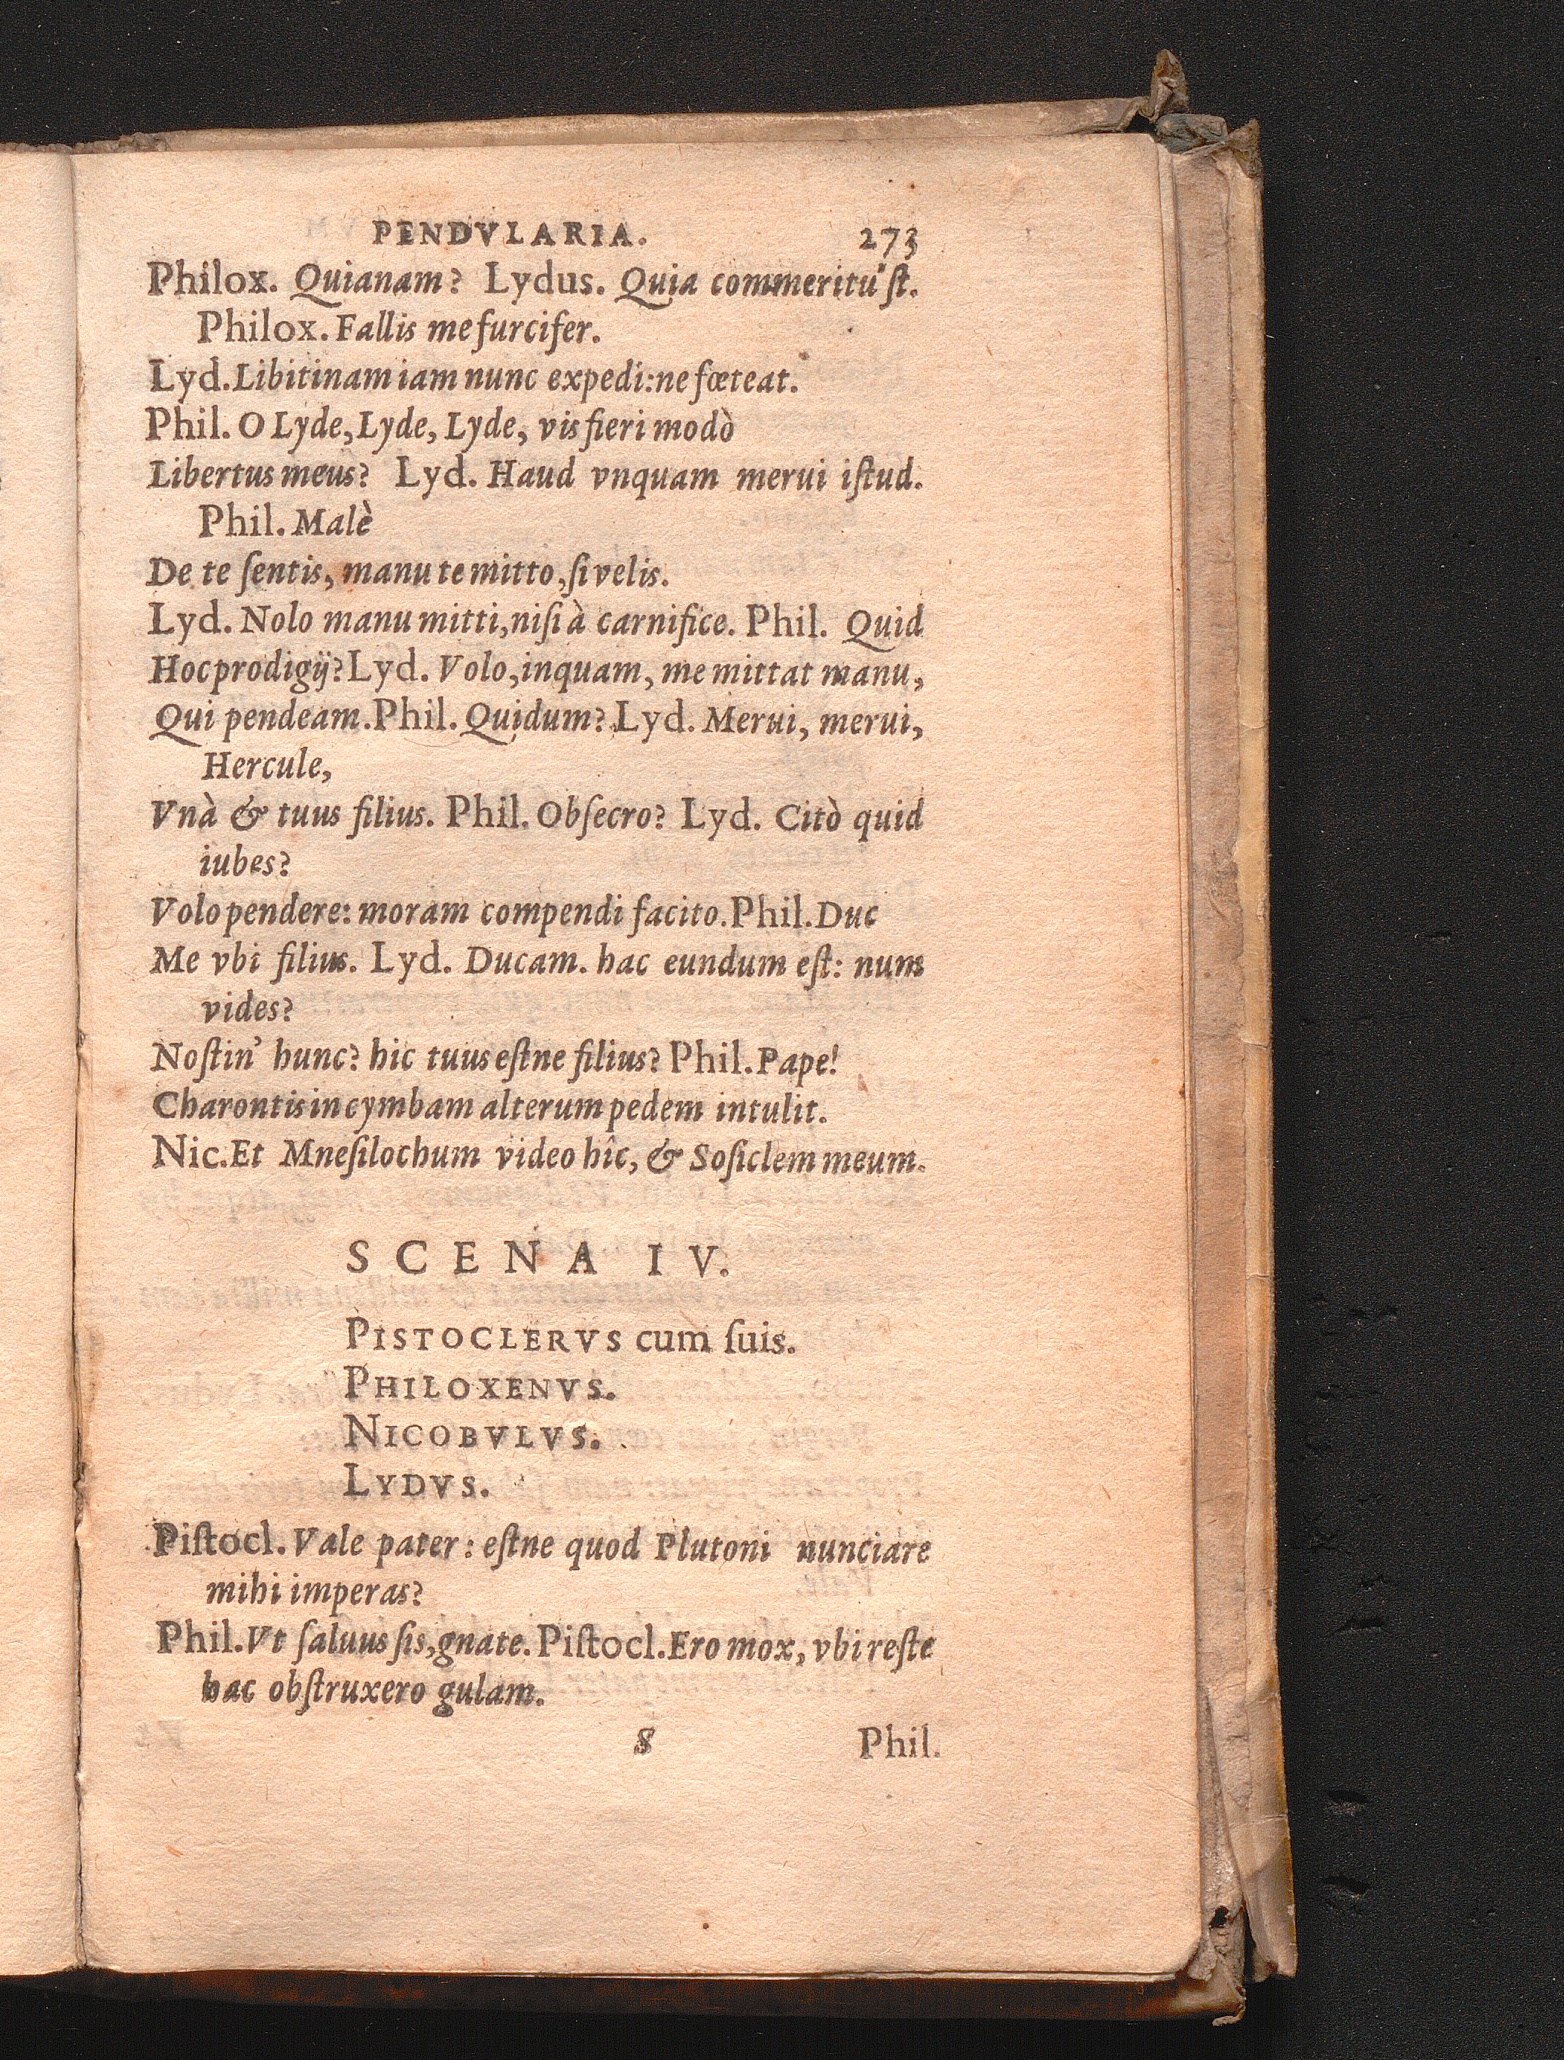 PENDVLARIA. 273
Philox. Quianam? Lydus. Quia commeritu'ſt.
Philox. Fallis me furcifer.
Lyd. Libitinam iam nunc expedi: ne fœteat.
Phil. O Lyde, Lyde, Lyde, vis fieri modò
Libertus meus? Lyd. Haud vnquam merui iſtud.
Phil. Malè
De te ſentis, manu te mitto, ſi velis.
Lyd. Nolo manu mitti, niſi à carnifice. Phil. Quid
Hoc prodigij? Lyd. Volo, inquam, me mittat manu,
Qui pendeam. Phil. Quidum? Lyd. Merui, merui,
Hercule,
Vnà & tuus filius. Phil. Obſecro? Lyd. Citò quid
iubes?
Volo pendere: moram compendi facito. Phil. Duc
Me vbi filius. Lyd. Ducam. hac eundum eſt: num
vides?
Noſtin' hunc? hic tuus eſtne filius? Phil. Pape!
Charontis in cymbam alterum pedem intulit.
Nic. Et Mneſilochum video hîc, & Soſiclem meum.
SCENA IV.
PISTOCLERVS cum ſuis.
PHILOXENVS.
NICOBVLVS.
LYDVS.
Piſtocl. Vale pater: eſtne quod Plutoni nunciare
mihi imperas?
Phil. Vt ſaluus ſis, gnate. Piſtocl. Ero mox, vbi reſte
hac obſtruxero gulam.
S Phil.